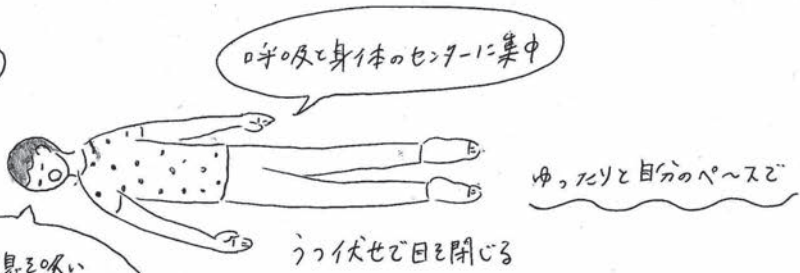 呼吸と身体のセンターに集中
ゆったりと自分のペースで
うつ伏せで目を閉じる
息を吸い